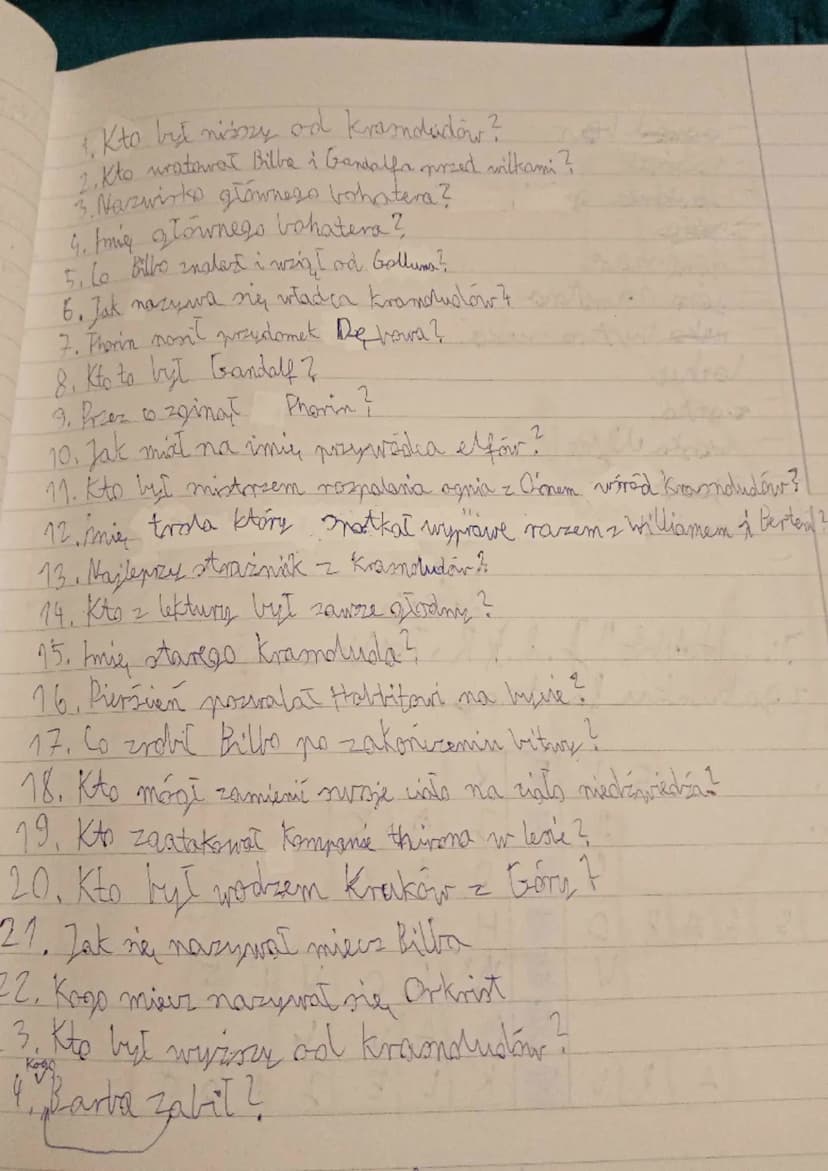 1. Kto był niższy od krasnoludów?
2. Kto uratował Bilba i Gandalfa przed wilkami?
3. Nazwisko głównego bohatera?
4. Imię głównego bohatera?
5. Co Bilbo znalazł i wziął od Golluma?
6. Jak nazywa się władca krasnoludów?
7. Thorin nosił przydomek Dębowa?
8. Kto to był Gandalf?
9. Przez co zginął Thorin?
10. Jak miał na imię przywódca elfów?
11. Kto był mistrzem rozpalania ognia z Oinem wśród krasnoludów?
12. Imię trola który spotkał wyprawe razem z Williamem i Bertem?
13. Najlepszy strażnik z krasnoludów?
14. Kto z lektury był zawsze głodny?
15. Imię starego krasnoluda?
16. Pierścień pozwalał Hobbitowi na bycie?
17. Co zrobił Bilbo po zakończeniu bitwy?
18. Kto mógł zamienić swoje ciało na ciało niedźwiedzia?
19. Kto zaatakował kompanie thirona w lesie?
20. Kto był wodzem Kruków z Góry?
21. Jak się nazywał miecz Bilba
22. Kogo miecz nazywał się Orkrist
3. Kto był wyższy od krasnoludów?
Kogo
4. Barba zabił?